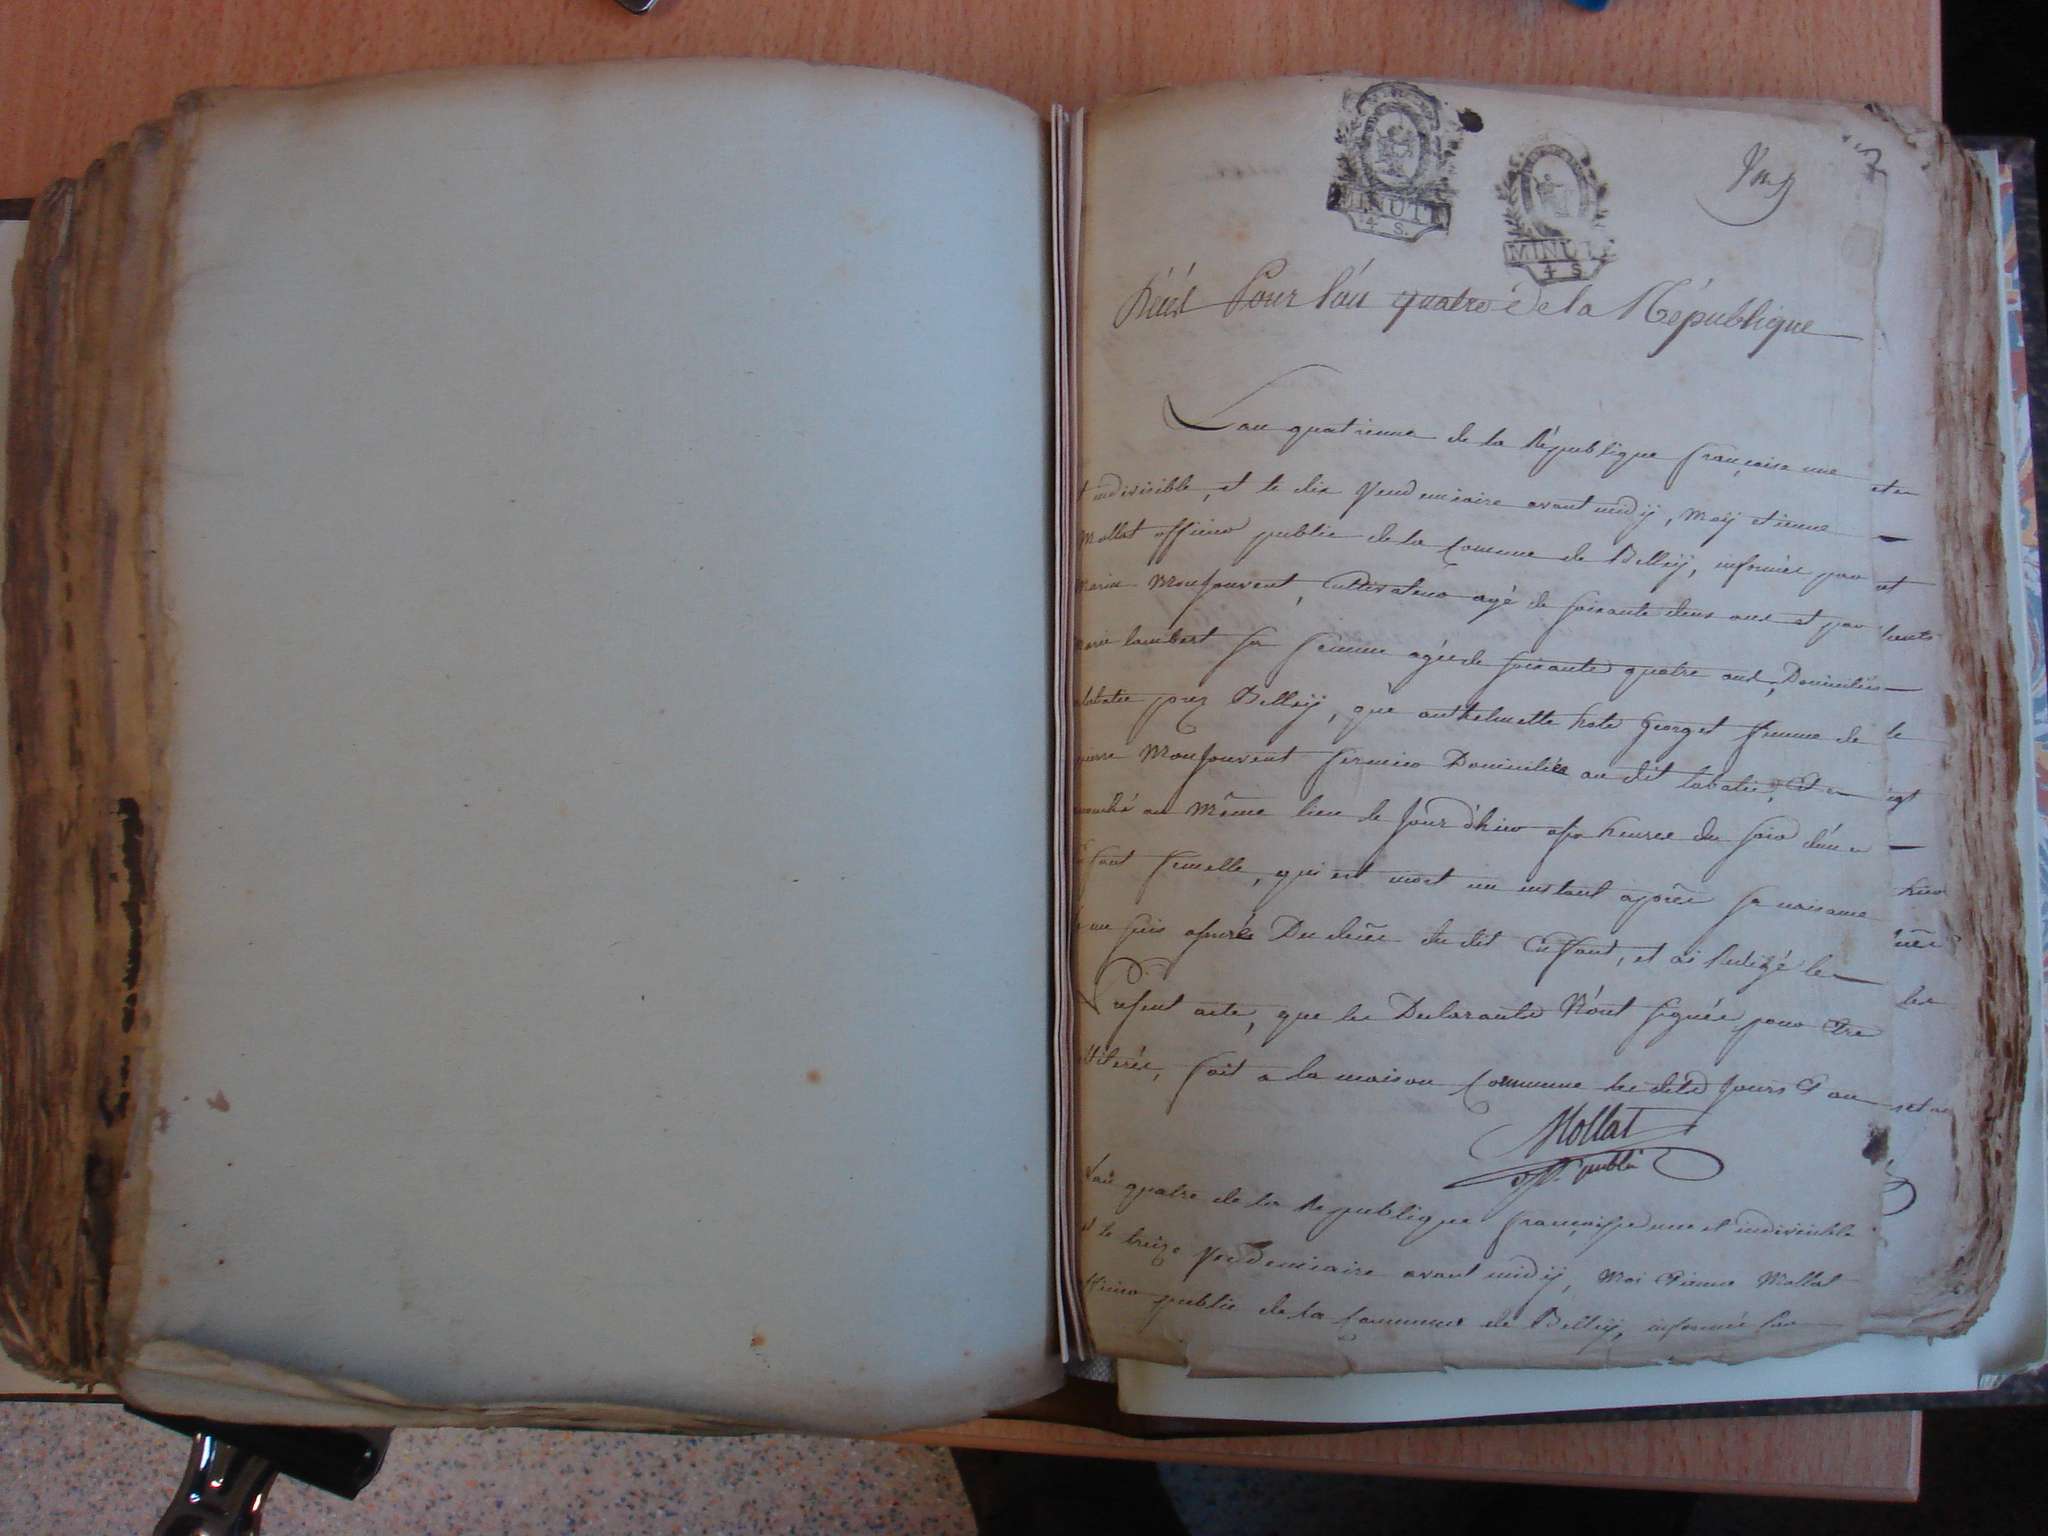 MINUTE
4 S.
MINUTE
4 S
Pour l'an quatre de la République
L'an quatrieme de la République françoise une
indivisible, et le dix Vendemiaire avant midÿ, moÿ etienne
Mollat officier public de la Commune de Belleÿ, informée par
Monfouvent, Cultivateur agé de soixante deux ans et par
lambert sa femme agée de soixante quatre ans, Domiciliés
prez Belleÿ, que anthelmette Georget femme de
Monfouvent fermier Domiciliée au dit labatie, Est
au même lieu le Jour d'hier heures du soir d'un
femelle, qui est mort un instant après sa naissance
suis assuré Du décès du dit Enfant, et ai Redigé le
present acte, que les Declarants N'ont signée pour être
illiterés, fait a la maison Commune les dits Jours & an
Mollat
off. public
L'an quatre de la Republique françoise une et indivisible
et le treize Vendemiaire avant midÿ, Moi Etienne Mollat
officier public de la Commune de Belleÿ, informée par